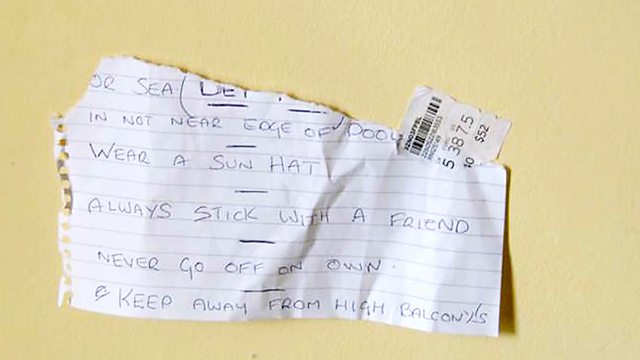 OR SEA (
IN NOT NEAR EDGE OF POOL
WEAR A SUN HAT
ALWAYS STICK WITH A FRIEND
NEVER GO OFF ON OWN.
& KEEP AWAY FROM HIGH BALCONY'S
5 387.5
40 S52